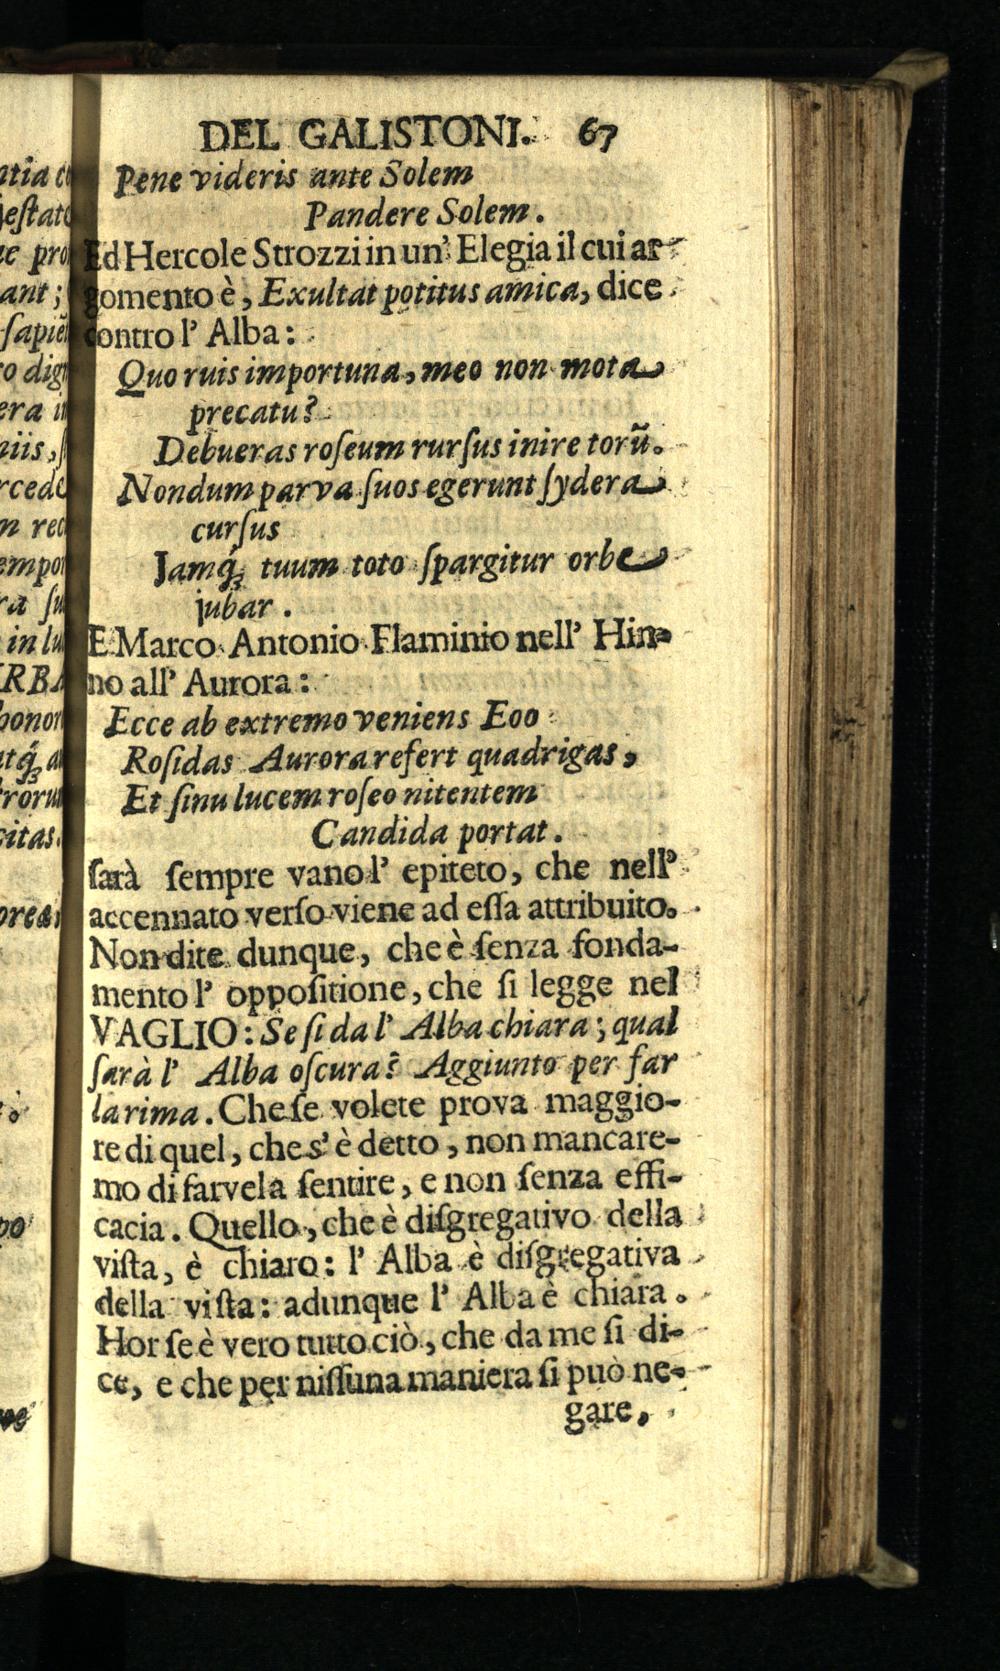 DEL GALISTONI. 67
Pene videris ante Solem
Pandere Solem.
Ed Hercole Strozzi in un' Elegia il cui ar-
gomento è, Exultat potitus amica, dice
contro l' Alba:
Quo ruis importuna, meo non mota
precatu?
Debueras roſeum rurſus inire torũ.
Nondum parva ſuos egerunt ſydera
curſus
Jamq́; tuum toto ſpargitur orbe
jubar.
E Marco Antonio Flaminio nell' Hin-
no all' Aurora:
Ecce ab extremo veniens Eoo
Roſidas Aurora refert quadrigas,
Et ſinu lucem roſeo nitentem
Candida portat.
ſarà ſempre vano l' epiteto, che nell'
accennato verſo viene ad eſſa attribuito.
Non dite dunque, che è ſenza fonda-
mento l' oppoſitione, che ſi legge nel
VAGLIO: Se ſi da l' Alba chiara; qual
ſarà l' Alba oſcura? Aggiunto per far
la rima. Che ſe volete prova maggio-
re di quel, che s' è detto, non mancare-
mo di farvela ſentire, e non ſenza effi-
cacia. Quello, che è diſgregativo della
viſta, è chiaro: l' Alba è diſgregativa
della viſta: adunque l' Alba è chiara.
Hor ſe è vero tutto ciò, che da me ſi di-
ce, e che per niſſuna maniera ſi può ne-
gare,